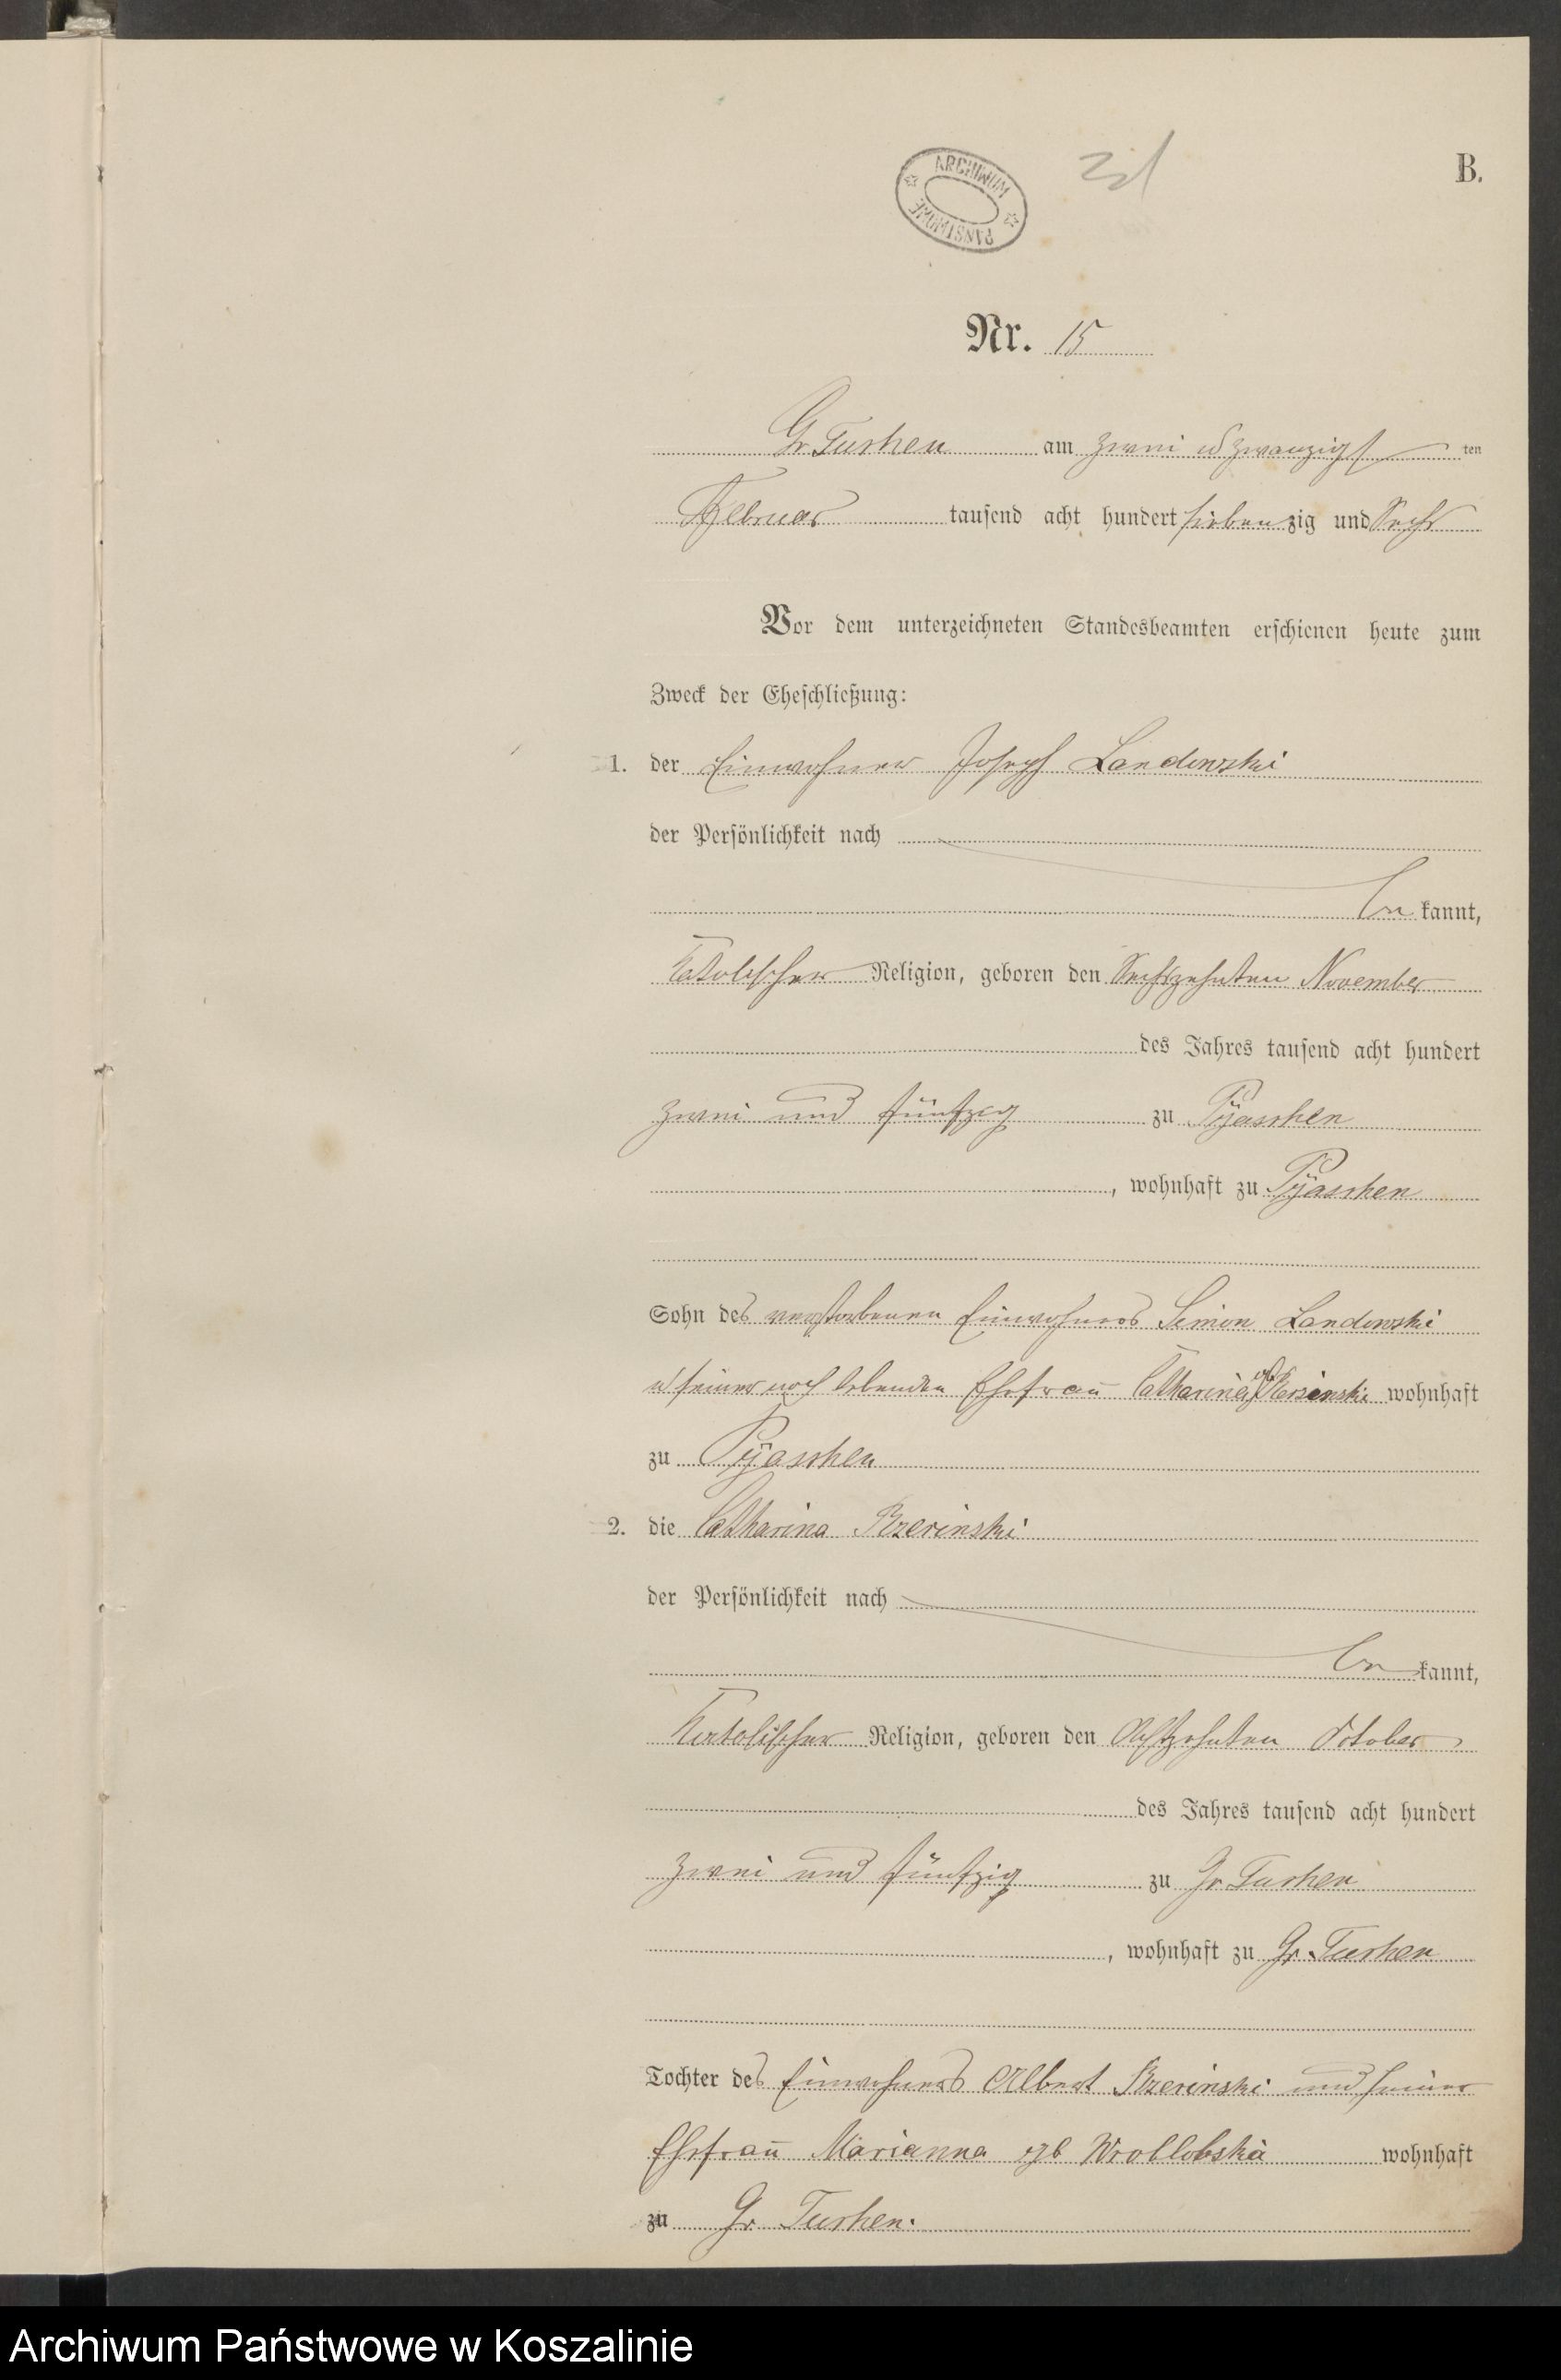 ARCHIWUM
PAŃSTWOWE
B.
Nr. 15
Gr Tuchen am zwei u zwanzigsten
Februar tausend acht hundert siebenzig und Sechs
Vor dem unterzeichneten Standesbeamten erschienen heute zum
Zweck der Eheschließung:
1. der Einwohner Joseph Landowski
der Persönlichkeit nach
kannt,
Katolischer Religion, geboren den Sechszehnten November
des Jahres tausend acht hundert
zwei und fünfzig zu Pyaschen
, wohnhaft zu Pyaschen
Sohn des verstorbenen Einwohners Simon Landowski
u seiner noch lebenden Ehefrau Catharina wohnhaft
zu Pyaschen
2. die Catharina Brzerinski
der Persönlichkeit nach
kannt,
Katolischer Religion, geboren den Achtzehnten October
des Jahres tausend acht hundert
zwei und fünfzig zu Gr Tuchen
, wohnhaft zu Gr. Tuchen
Tochter des Einwohners Albert Brzerinski und seiner
Ehefrau Marianna geb Wroblobska wohnhaft
zu Gr Tuchen.
Archiwum Państwowe w Koszalinie